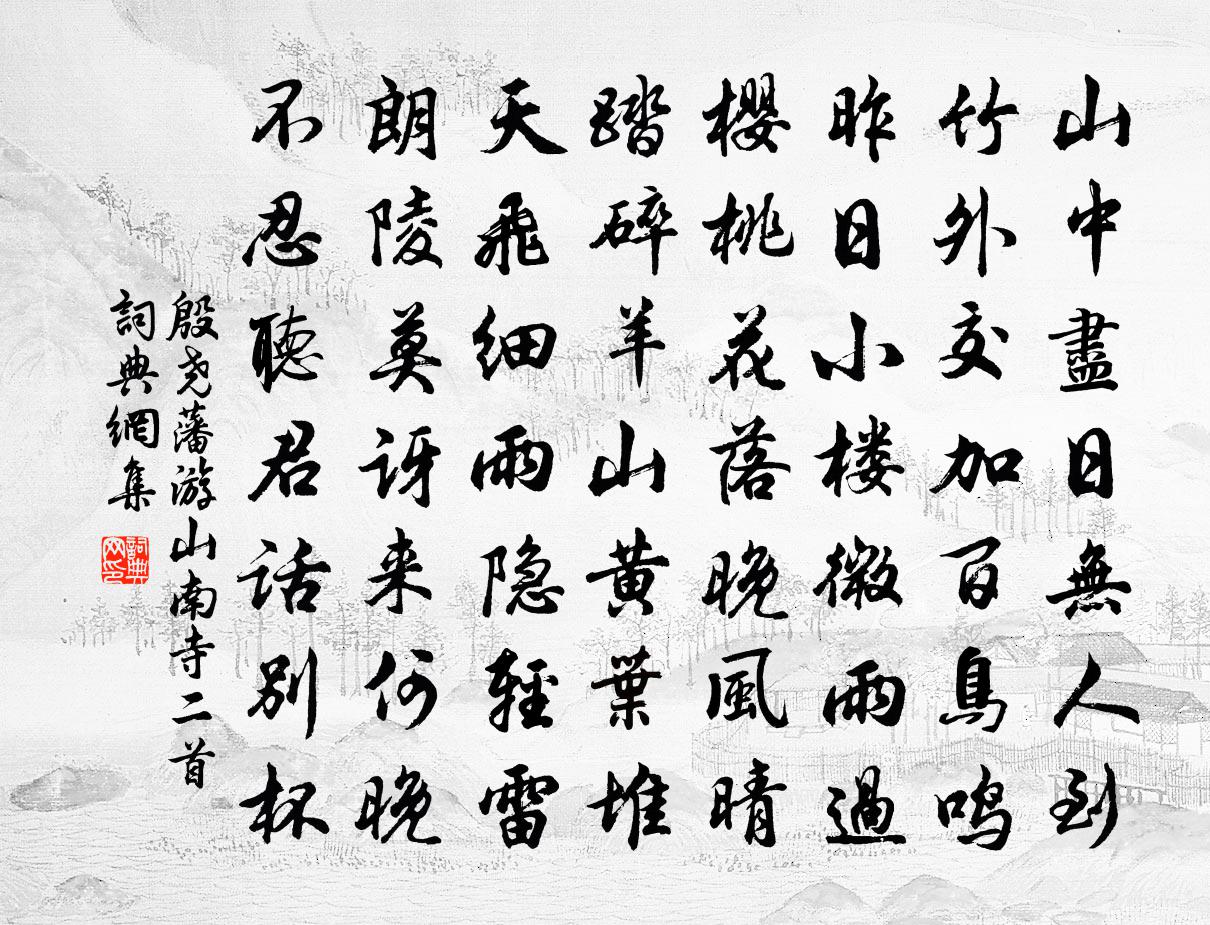 山中盡日無人到
竹外交加百鳥鳴
昨日小楼微雨過
櫻桃花落晚風晴
踏碎羊山黄葉堆
天飛细雨隐輕雷
朗陵莫讶来何晚
不忍聴君话别杯
殷尧藩游山南寺二首
詞典網集
詞典网印